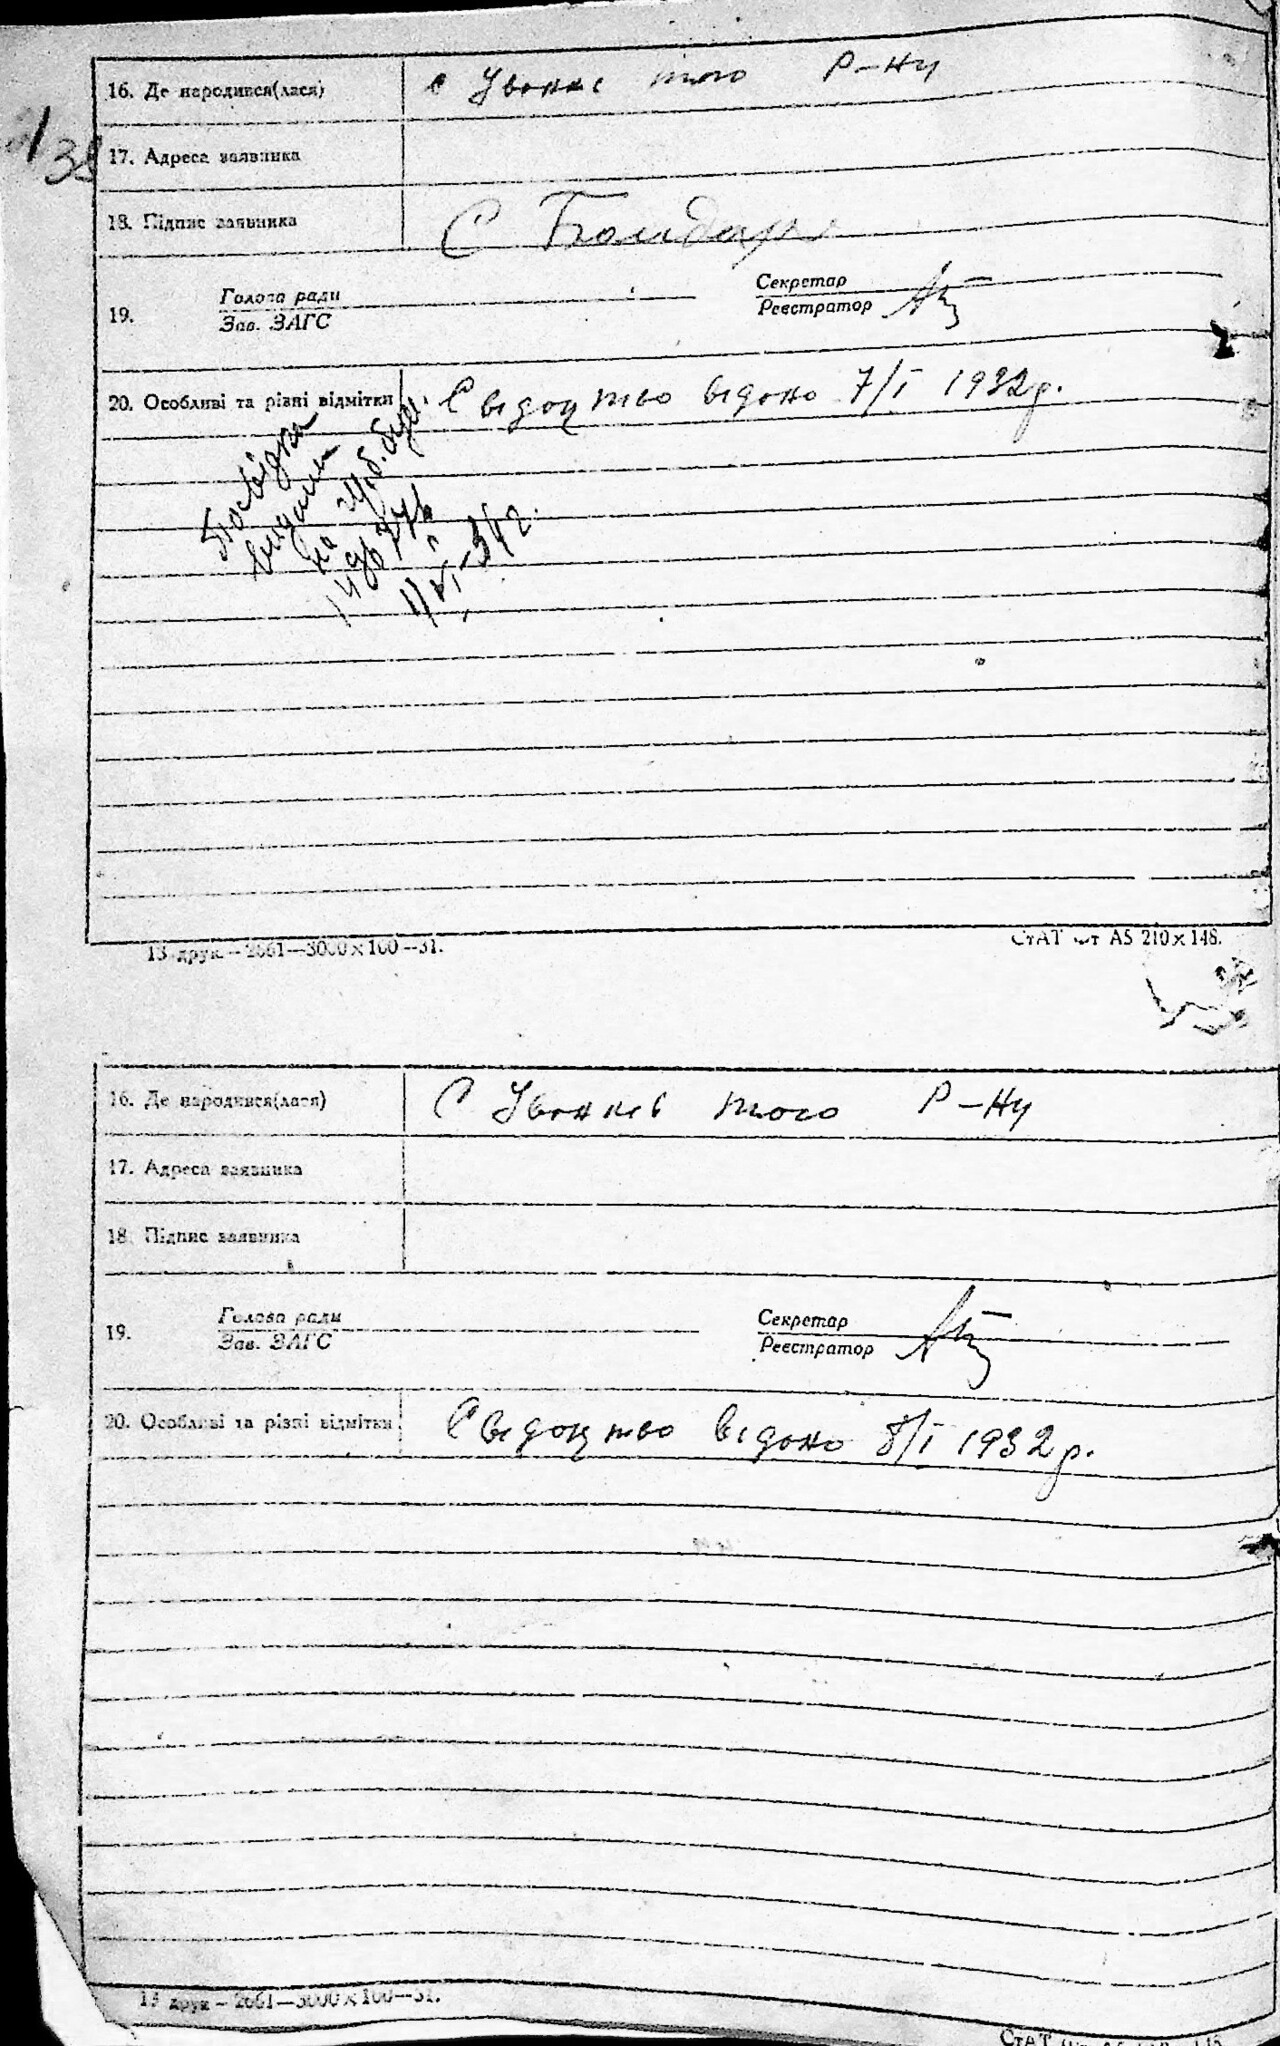 16. Де народився(лася) с Увакке того Р-ну
/38
17. Адреса заявника
18. Підпис заявника С Бондар
19. Голова ради
Зав. ЗАГС
Секретар
Реєстратор
20. Особливі та різні відмітки Свідоцтво відоно 7/I 1932р.
Посвідка
видана
на
1/VI-34г.
13 друк – 2661—3000×100—31.
СтАТ A5 210×148.
16. Де народився(лася) С того Р-ну
17. Адреса заявника
18. Підпис заявника
19. Голова ради
Зав. ЗАГС
Секретар
Реєстратор
20. Особливі та різні відмітки Свідоцтво відоно 8/I 1932р.
13 друк – 2661—3000×100—31.
СтАТ